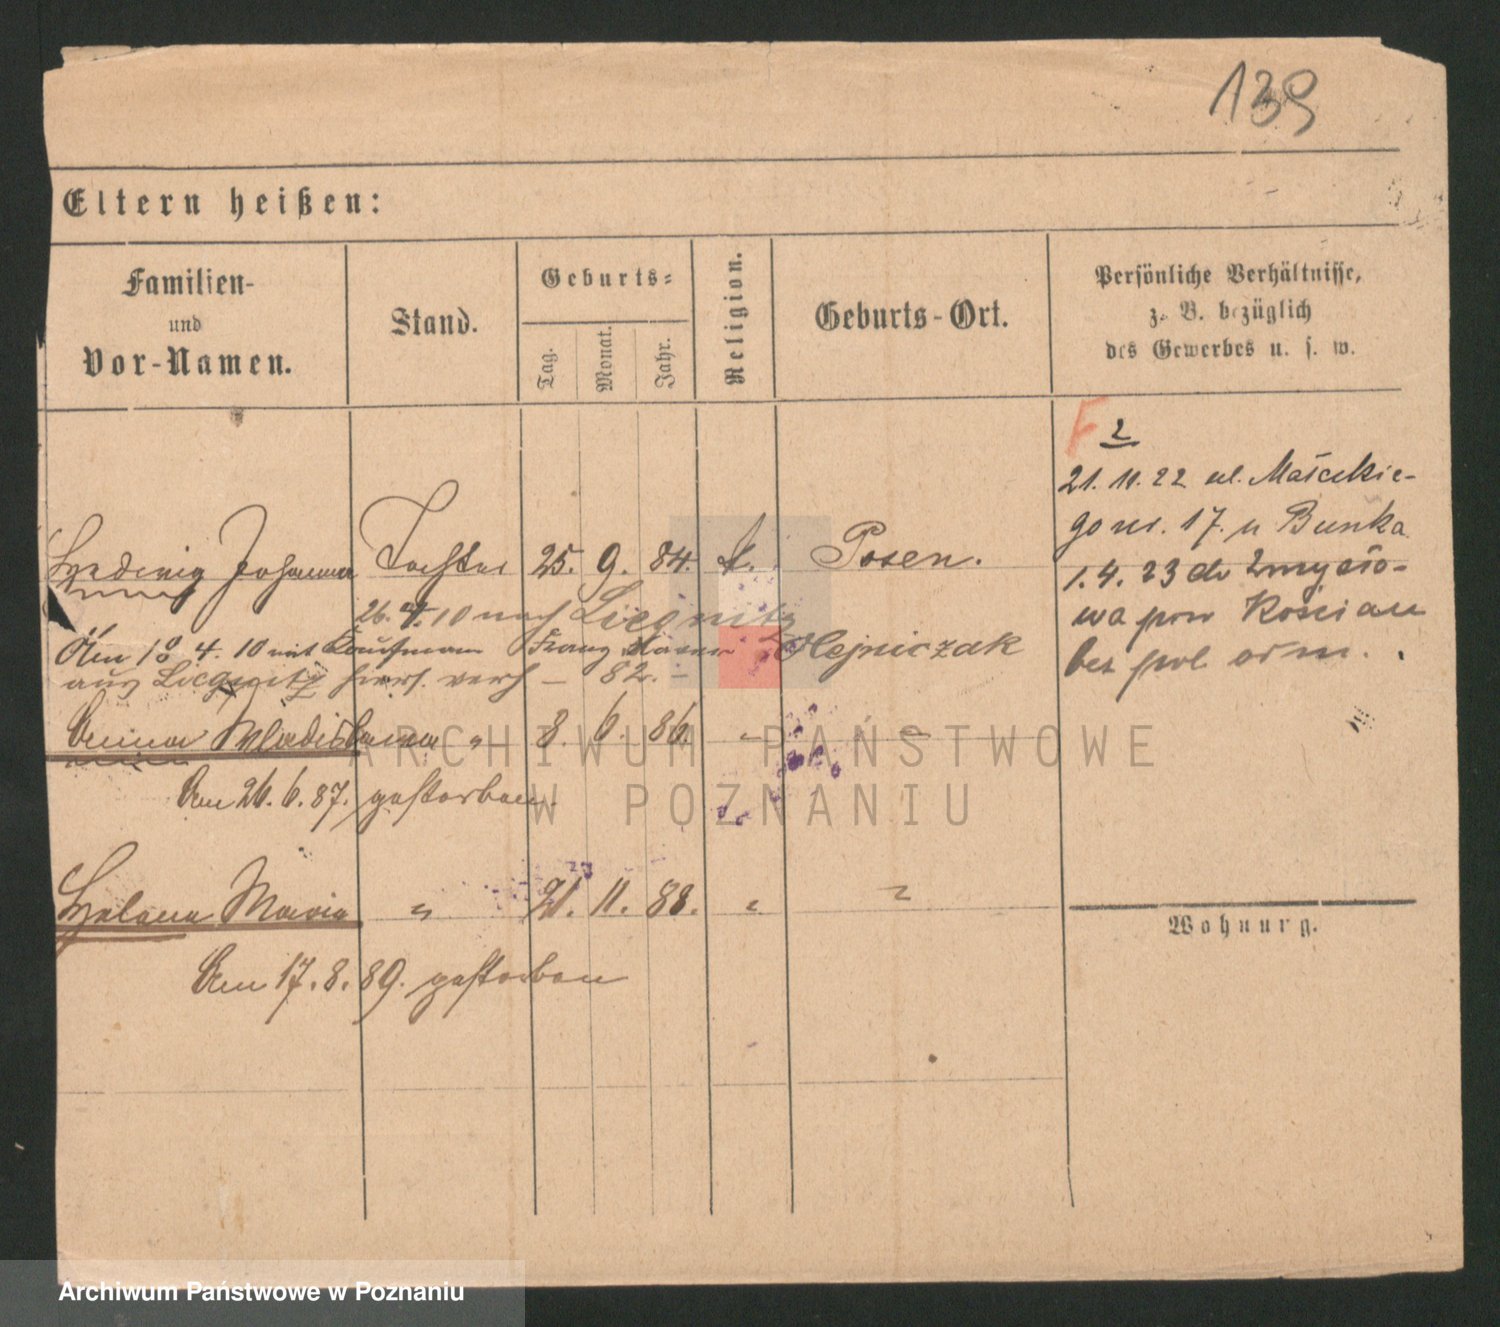 139
Eltern heißen:
Familien-
und
Vor-Namen.
Stand.
Geburts-
Tag.
Monat.
Jahr.
Religion.
Geburts-Ort.
Persönliche Verhältnisse,
z. B. bezüglich
des Gewerbes u. s. w.
F 2
21. 11. 22 ul. Małeckie-
go nr. 17. u Bunka
1. 4. 23 do Zmysło-
wa pow Kościan
bez pol
Hedwig Johanna Tochter 25. 9. 84. k. Posen.
26. 4. 10 nach Liegnitz
Am 18. 4. 10 mit Kaufmann Franz Xaver Olejniczak
aus Liegnitz verh – 82. –
Anna Wladislawa " 8. 6. 86. " "
Am 26. 6. 87. gestorben.
Helena Maria " 21. 11. 88. " "
Am 17. 8. 89. gestorben
Wohnung.
ARCHIWUM PAŃSTWOWE
W POZNANIU
Archiwum Państwowe w Poznaniu